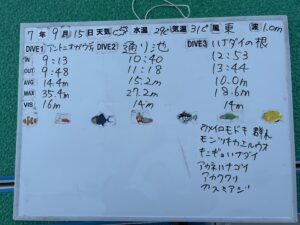 7年9月15日 天気 水温29℃ 気温31℃ 風 東 波1.0m
DIVE1 アントニオガウディ DIVE2 通り池 DIVE3 ハナダイの根
IN 9:13 10:40 12:53
OUT 9:48 11:18 13:44
AVG 14.4m 15.2m 10.0m
MAX 35.4m 27.2m 18.6m
VIS 16m 14m 14m
ウメイロモドキ 群れ
モンツキカエルウオ
キンギョハナダイ
アカネハナゴイ
アカククリ
カスミアジ